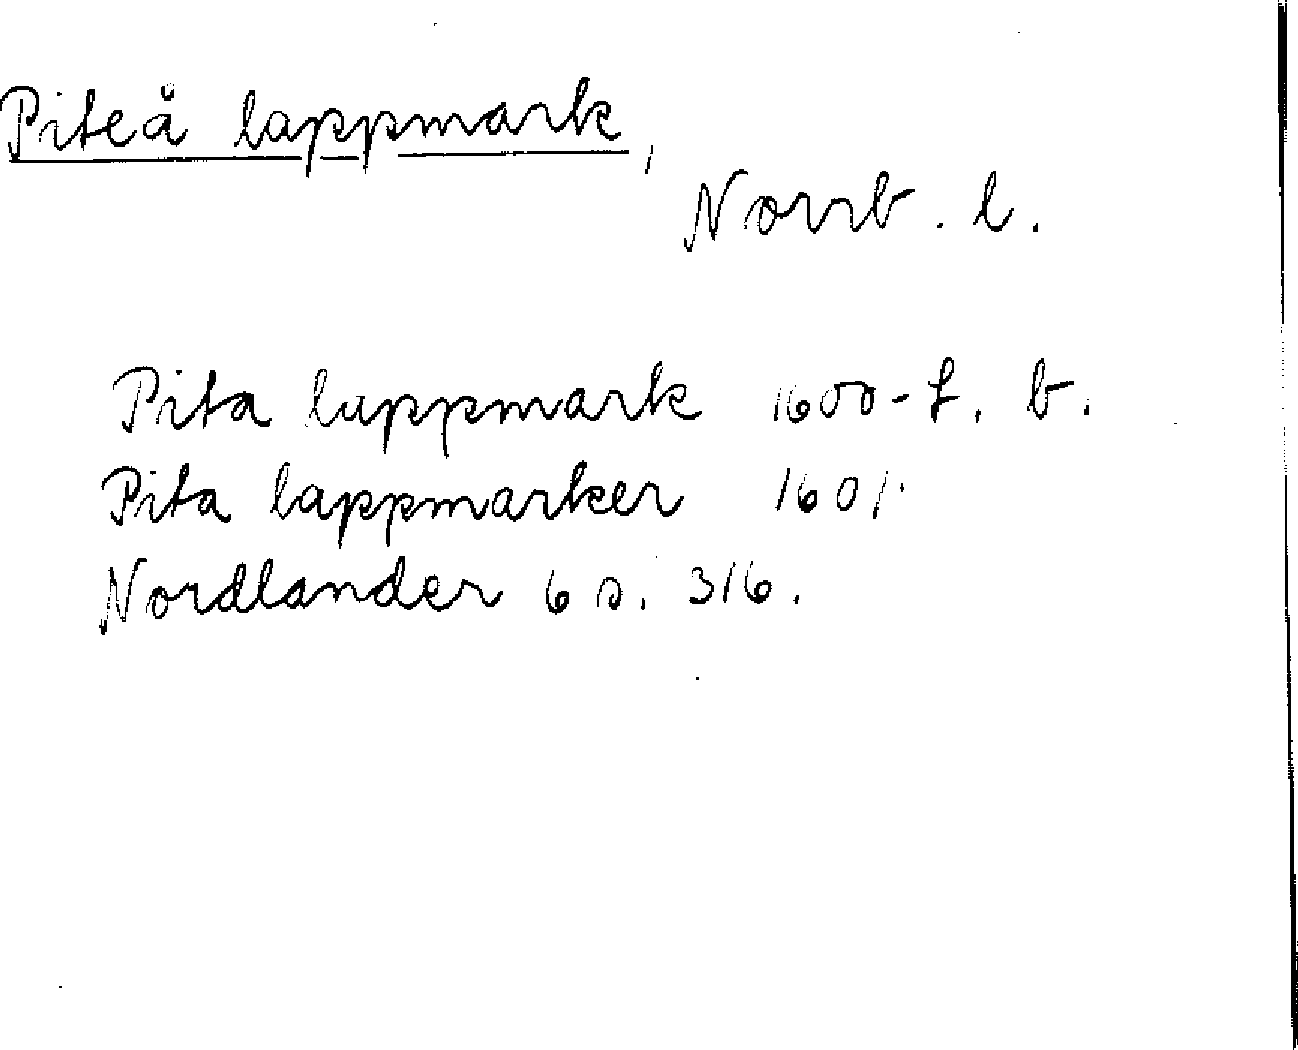 Piteå lappmark,
Norrb. l.
Pita lappmark 1600-t. b.
Pita lappmarker 1601.
Nordlander 6 s. 316.